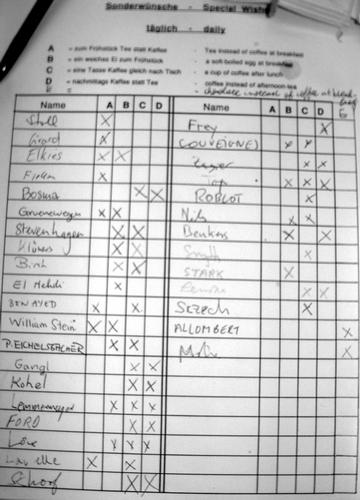 Sonderwünsche - Special Wishes
täglich - daily
A = zum Frühstück Tee statt Kaffee Tea instead of coffee at breakfast
B = ein weiches Ei zum Frühstück - a soft boiled egg at breakfast
C = eine Tasse Kaffee gleich nach Tisch - a cup of coffee after lunch
D = nachmittags Kaffee statt Tee - coffee instead of afternoon tea
E = chocolate instead of coffee at breakfast
Name A B C D Name A B C D E
Stoll X Frey X
Girard X COUVEIGNES X X
Elkies X X X X
X X X X
Bosma X X ROBLOT X
Groenewegen X X X X
Stevenhagen X X Benkers X X
Klüners X X Smyth X
Birch X X STARK X
El Mehdi X X X
BEN AYED X X X
William Stein X X ALLOMBERT X
P. EICHELSBACHER X X X
Gangl X X
Kohel X X
Lemmermeyer X X X
FORD X X
X X X
X X
Schoof X X